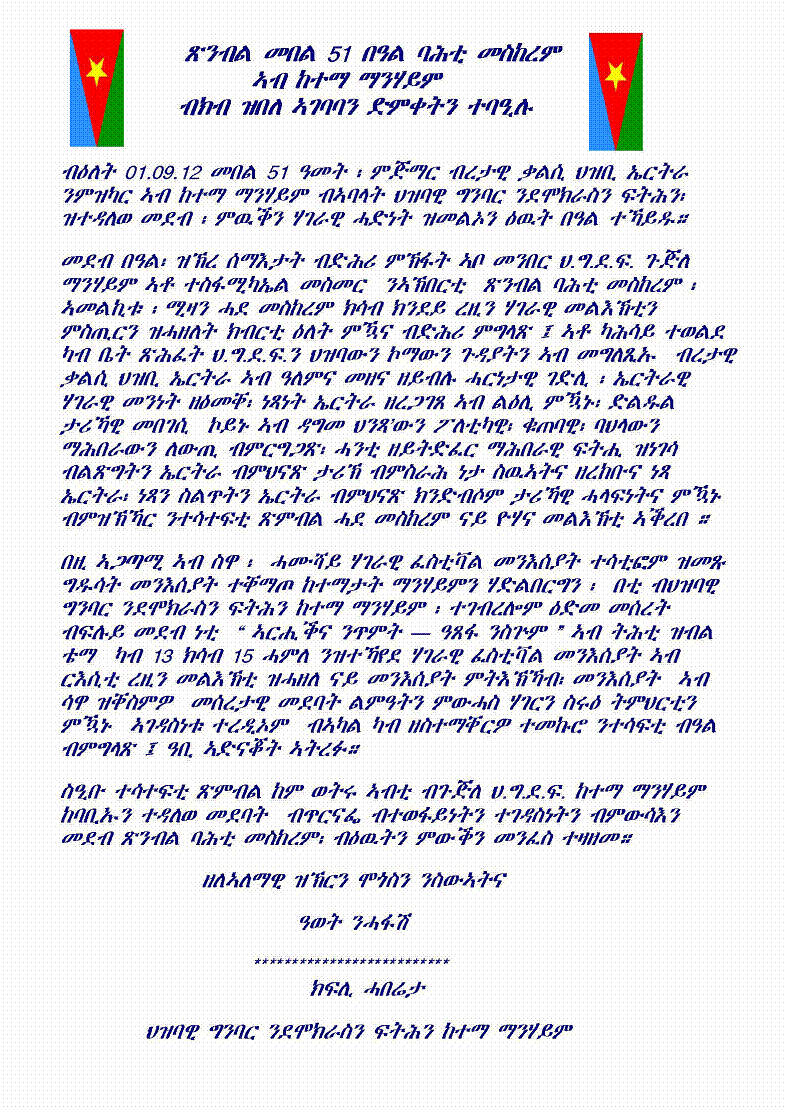 ጽንብል መበል 51 በዓል ባሕቲ መስከረም
ኣብ ከተማ ማንሃይም
ብክብ ዝበለ ኣገባባን ድምቀትን ተባዒሉ
ብዕለት 01.09.12 መበል 51 ዓመት ፡ ምጅማር ብረታዊ ቃልሲ ህዝቢ ኤርትራ
ንምዝካር ኣብ ከተማ ማንሃይም ብኣባላት ህዝባዊ ግንባር ንደሞክራስን ፍትሕን፡
ዝተዳለወ መደብ ፡ ምዉቕን ሃገራዊ ሓድነት ዝመልኦን ዕዉት በዓል ተኻይዱ።
መደብ በዓል፡ ዝኽረ ሰማእታት ብድሕሪ ምኽፋት ኣቦ መንበር ህ.ግ.ደ.ፍ. ጉጅለ
ማንሃይም ኣቶ ተስፋሚካኤል መስመር ንኣኽበርቲ ጽንብል ባሕቲ መስከረም ፡
ኣመልኪቱ ፡ ሚዛን ሓደ መስከረም ክሳብ ክንደይ ረዚን ሃገራዊ መልእኽቲን
ምስጢርን ዝሓዘለት ክብርቲ ዕለት ምዃና ብድሕሪ ምግላጽ ፤ ኣቶ ካሕሳይ ተወልደ
ካብ ቤት ጽሕፈት ህ.ግ.ደ.ፍ.ን ህዝባውን ኮማውን ጉዳያትን ኣብ መግለጺኡ ብረታዊ
ቃልሲ ህዝቢ ኤርትራ ኣብ ዓለምና መዘና ዘይብሉ ሓርነታዊ ገድሊ ፡ ኤርትራዊ
ሃገራዊ መንነት ዘዕመቖ፡ ነጻነት ኤርትራ ዘረጋገጸ ኣብ ልዕሊ ምዃኑ፡ ድልዱል
ታሪኻዊ መበገሲ ኮይኑ ኣብ ዳግመ ህንጸውን ፖለቲካዊ፡ ቁጠባዊ፡ ባህላውን
ማሕበራውን ለውጢ ብምርግጋጽ፡ ሓንቲ ዘይትድፈር ማሕበራዊ ፍትሒ ዝነገሳ
ብልጽግትን ኤርትራ ብምህናጽ ታሪኽ ብምስራሕ ነታ ስዉኣትና ዘረከቡና ነጻ
ኤርትራ፡ ነጻን ስልጥትን ኤርትራ ብምህናጽ ክንድብሶም ታሪኻዊ ሓላፍነትና ምዃኑ
ብምዝኽኻር ንተሳተፍቲ ጽምብል ሓደ መስከረም ናይ ዮሃና መልእኽቲ ኣቕረበ ።
በዚ ኣጋጣሚ ኣብ ስዋ ፡ ሓሙሻይ ሃገራዊ ፈስቲቫል መንእሰያት ተሳቲፎም ዝመጹ
ግዱሳት መንእሰያት ተቐማጦ ከተማታት ማንሃይምን ሃድልበርግን ፡ በቲ ብህዝባዊ
ግንባር ንደሞክራስን ፍትሕን ከተማ ማንሃይም ፡ ተገብረሎም ዕድመ መሰረት
ብፍሉይ መደብ ነቲ “ ኣርሒቕና ንጥምት — ዓጸፋ ንስጉም ” ኣብ ትሕቲ ዝብል
ቴማ ካብ 13 ክሳብ 15 ሓምለ ንዝተኻየደ ሃገራዊ ፈስቲቫል መንእሰያት ኣብ
ርእሲቲ ረዚን መልእኽቲ ዝሓዘለ ናይ መንእሰያት ምትእኽኻብ፡ መንእሰያት ኣብ
ሳዋ ዝቐስምዎ መሰረታዊ መደባት ልምዓትን ምውሓስ ሃገርን ስሩዕ ትምህርቲን
ምዃኑ ኣገዳስነቱ ተረዲኦም ብኣካል ካብ ዘስተማቐርዎ ተመኩሮ ንተሳፍቲ ብዓል
ብምግላጽ ፤ ዓቢ ኣድናቖት ኣትረፉ።
ስዒቡ ተሳተፍቲ ጽምብል ከም ወትሩ ኣብቲ ብጉጅለ ህ.ግ.ደ.ፍ. ከተማ ማንሃይም
ከባቢኡን ተዳለወ መደባት ብጥርናፌ ብተወፋይነትን ተገዳስነትን ብምውሳእን
መደብ ጽንብል ባሕቲ መስከረም፡ ብዕዉትን ምውቕን መንፈስ ተዛዘመ።
ዘለኣለማዊ ዝኽርን ሞጎስን ንስውኣትና
ዓወት ንሓፋሽ
**************************
ክፍሊ ሓበሬታ
ህዝባዊ ግንባር ንደሞክራስን ፍትሕን ከተማ ማንሃይም